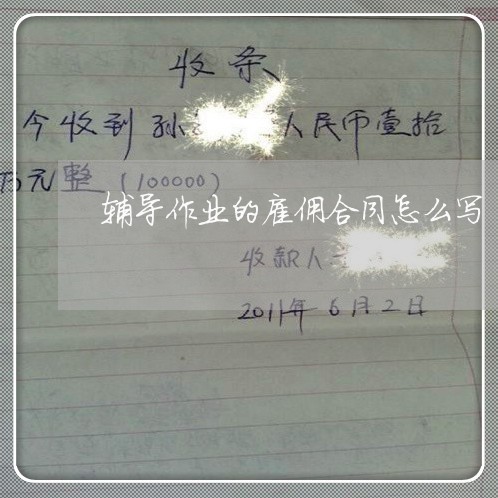 收条
今收到孙 人民币壹拾
万元整(100000)
辅导作业的雇佣合同怎么写
收款人
2011年6月2日